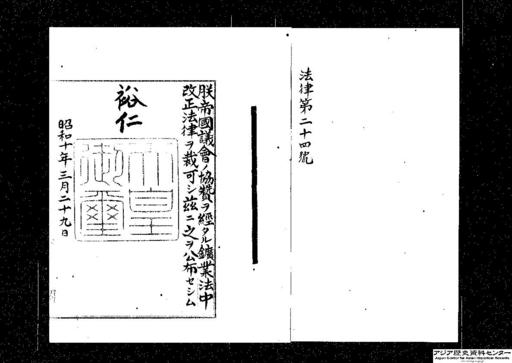 法律第二十四號
朕帝國議會ノ協贊ヲ經タル鑛業法中
改正法律ヲ裁可シ茲ニ之ヲ公布セシム
裕仁
天皇
御璽
昭和十年三月二十九日
アジア歴史資料センター
Japan Center for Asian Historical Records